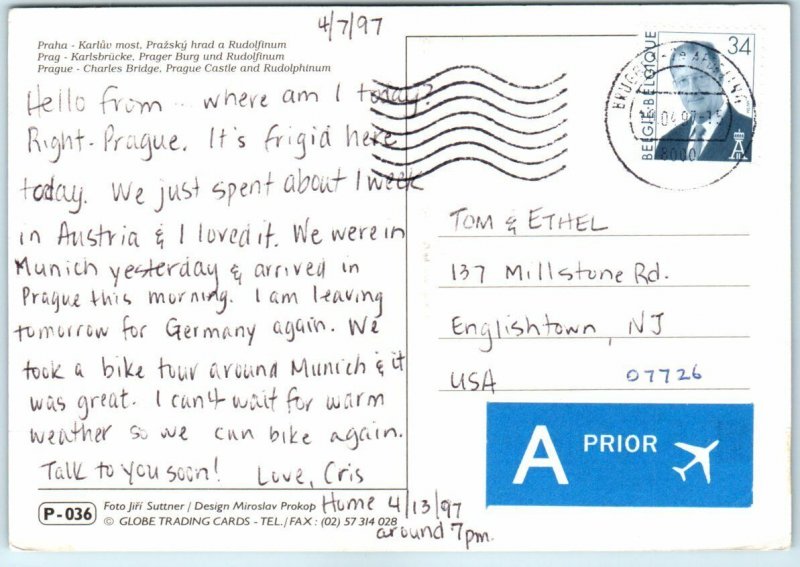 4/7/97
Praha - Karlův most, Pražský hrad a Rudolfinum
Prag - Karlsbrücke, Prager Burg und Rudolfinum
Prague - Charles Bridge, Prague Castle and Rudolphinum
Hello from... where am I today?
Right-Prague. It's frigid here
today. We just spent about 1 week
in Austria & I loved it. We were in
Munich yesterday & arrived in
Prague this morning. I am leaving
tomorrow for Germany again. We
took a bike tour around Munich & it
was great. I can't wait for warm
weather so we can bike again.
Talk to you soon! Love, Cris
Home 4/13/97
around 7pm.
P-036
Foto Jiří Suttner / Design Miroslav Prokop
© GLOBE TRADING CARDS - TEL./FAX: (02) 57 314 028
34
BELGIË-BELGIQUE
04-97-15
8000
TOM & ETHEL
137 Millstone Rd.
Englishtown, NJ
USA 07726
A PRIOR